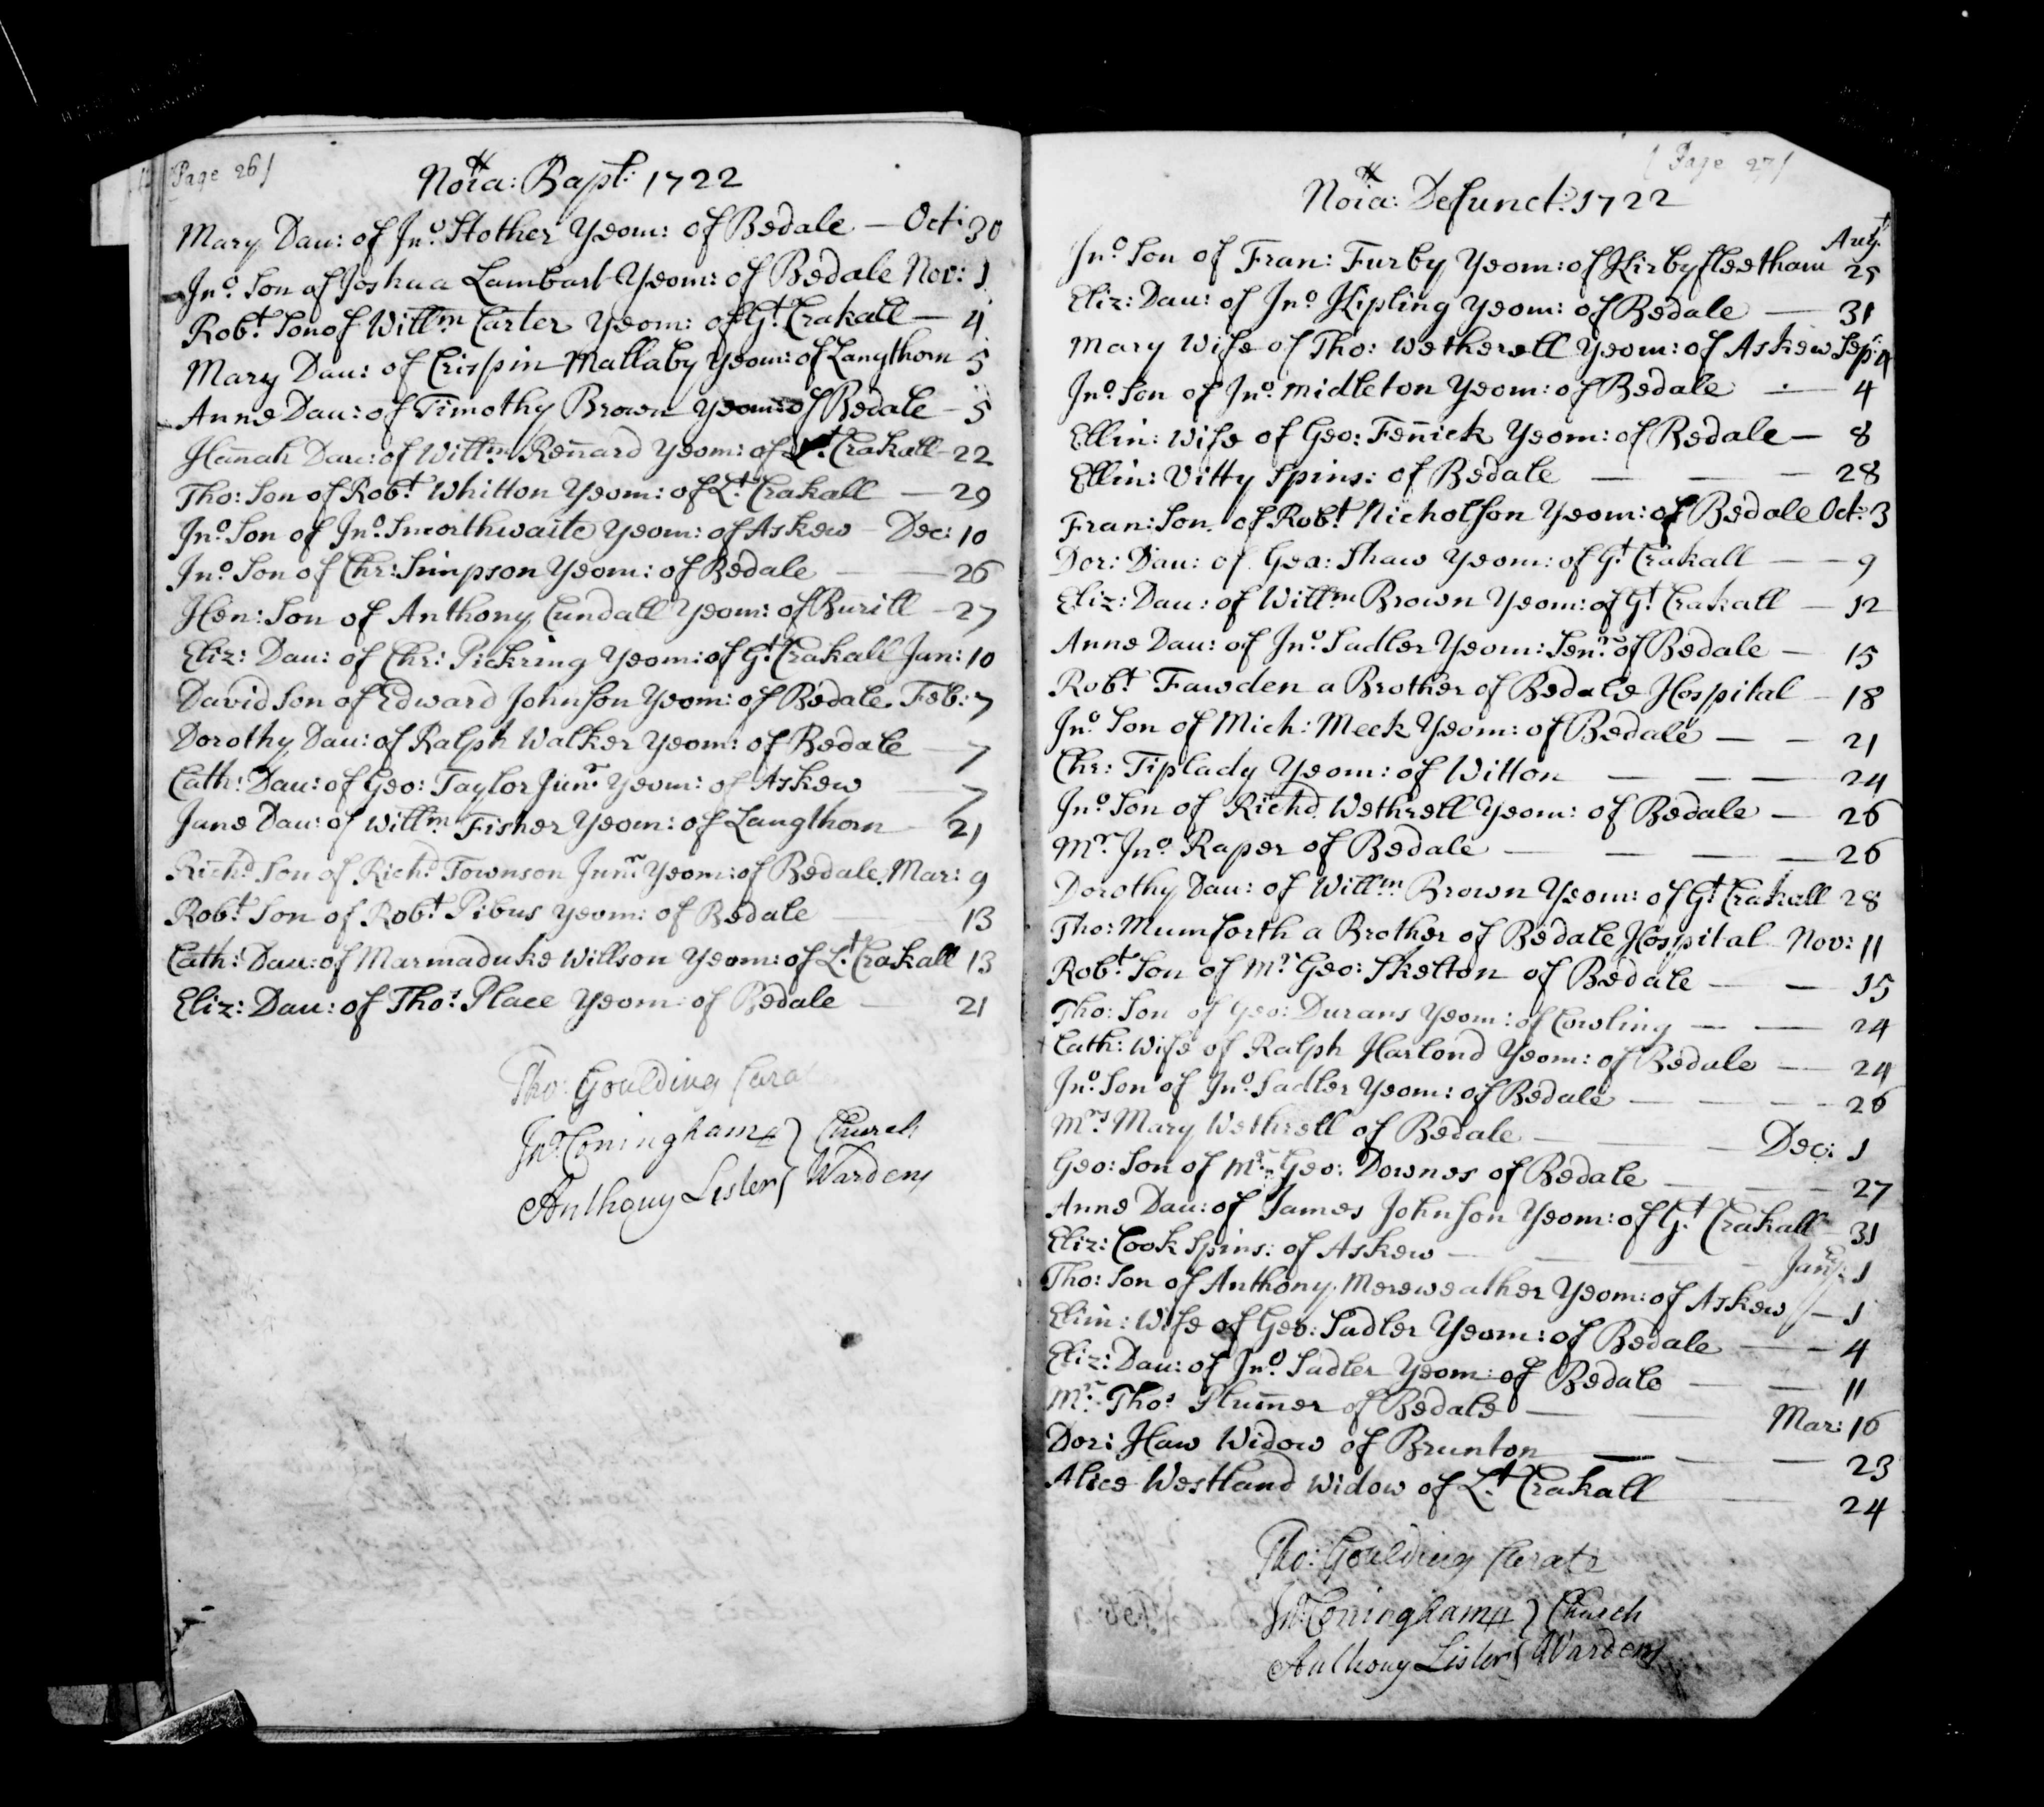 Page 26/
Noīa: Bapt: 1722
Mary Dau: of Jnº. Stother Yeom: of Bedale — Oct: 30
Jnº. Son of Joshua Lambart Yeom: of Bedale Nov: 1
Robt. Son of Willm. Carter Yeom: of Gt. Crakall — 4
Mary Dau: of Crispin Mallaby Yeom: of Langthorn 5
Anne Dau: of Timothy Brown Yeom: of Bedale — 5
Hannah Dau: of Willm. Reñard Yeom: of Lt. Crakall — 22
Tho: Son of Robt. Whitton Yeom: of Lt. Crakall — 29
Jnº. Son of Jnº. Smorthwaite Yeom: of Askew — Dec: 10
Jnº. Son of Chr: Simpson Yeom: of Bedale — 26
Hen: Son of Anthony Cundall Yeom: of Burill — 27
Eliz: Dau: of Chr: Pickring Yeom: of Gt. Crakall Jan: 10
David Son of Edward Johnson Yeom: of Bedale. Feb: 7
Dorothy Dau: of Ralph Walker Yeom: of Bedale — 7
Cath: Dau: of Geo: Taylor Junr. Yeom: of Askew — 7
Jane Dau: of Willm. Fisher Yeom: of Langthorn — 21
Richd. Son of Richd. Townson Junr. Yeom: of Bedale. Mar: 9
Robt. Son of Robt. Pibus Yeom: of Bedale — 13
Cath: Dau: of Marmaduke Willson Yeom: of Lt. Crakall 13
Eliz: Dau: of Tho: Place Yeom: of Bedale — 21
Tho: Goulding Cura
Jnº. Coningham } Church
Anthony Lister } Wardens
Page 27/
Noīa: Defunct: 1722
Augt.
Jnº. Son of Fran: Furby Yeom: of Kirbyfleetham 25
Eliz: Dau: of Jnº. Kipling Yeom: of Bedale — 31
Mary Wife of Tho: Wetherell Yeom: of Askew Sep: 4
Jnº. Son of Jnº. Midleton Yeom: of Bedale — 4
Ellin: Wife of Geo: Feñick Yeom: of Bedale — 8
Ellin: Vitty Spins: of Bedale — — 28
Fran: Son of Robt. Nicholson Yeom: of Bedale Oct: 3
Dor: Dau: of Geo: Shaw Yeom: of Gt. Crakall — — 9
Eliz: Dau: of Willm. Brown Yeom: of Gt. Crakall — 12
Anne Dau: of Jnº. Sadler Yeom: Senr. of Bedale — 15
Robt. Fawden a Brother of Bedale Hospital — 18
Jnº. Son of Mich: Meek Yeom: of Bedale — — 21
Chr: Tiplady Yeom: of Witton — — — 24
Jnº. Son of Richd. Wethrell Yeom: of Bedale — 26
Mr. Jnº. Raper of Bedale — — — — 26
Dorothy Dau: of Willm. Brown Yeom: of Gt. Crakall 28
Tho: Mumforth a Brother of Bedale Hospital Nov: 11
Robt. Son of Mr. Geo: Skelton of Bedale — — 15
Tho: Son of Geo: Durans Yeom: of Cowling — — 24
Cath: Wife of Ralph Harlond Yeom: of Bedale — 24
Jnº. Son of Jnº. Sadler Yeom: of Bedale — — — 26
Mrs. Mary Wethrell of Bedale — — Dec: 1
Geo: Son of Mr. Geo: Downes of Bedale — — — 27
Anne Dau: of James Johnson Yeom: of Gt. Crakall — 31
Eliz: Cook Spins: of Askew — — — Jany: 1
Tho: Son of Anthony Mereweather Yeom: of Askew — 1
Ellin: Wife of Geo: Sadler Yeom: of Bedale — — 4
Eliz: Dau: of Jnº. Sadler Yeom: of Bedale — — 11
Mr. Tho: Plum̄er of Bedale — — Mar: 16
Dor: Haw Widow of Brunton — — — 23
Alice Westland Widow of Lt. Crakall — 24
Tho: Goulding Curate
Jnº. Coningham } Church
Anthony Lister } Wardens